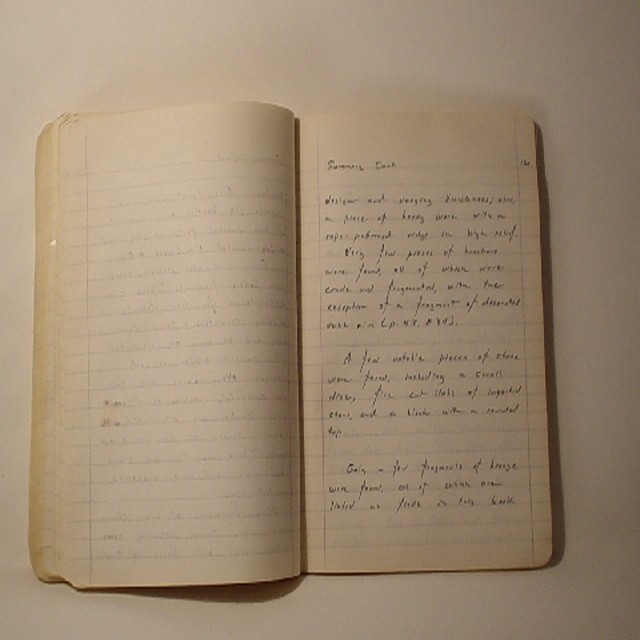 Summary
designs and varying thicknesses, also
a piece of heavy ware with a
rope patterned ridge in high relief.
Very few pieces of
were found, all of which were
crude and fragmented, with the
exception of a fragment of decorated
A few notable pieces of stone
were found, including a small
disc, five cut slabs of imported
stone, and a block with a rounded
top.
Only a few fragments of bronze
were found, all of which are
listed as finds in this book